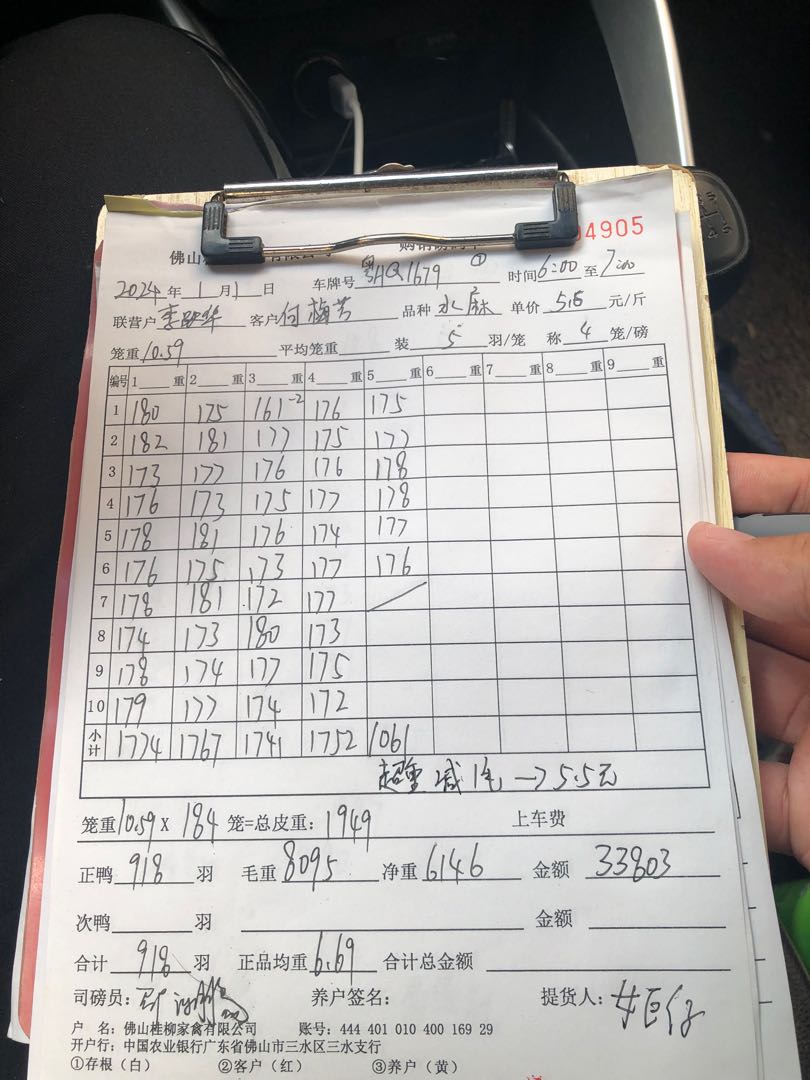 佛山 有限公司 购销磅码单 ① 04905
2024 年 1 月 1 日 车牌号 粤HQ1679 时间 6:00 至 7:00
联营户 客户 何梅芳 品种 水麻 单价 5.6 元/斤
笼重 10.59 平均笼重 装 5 羽/笼 称 4 笼/磅
编号 1 重 2 重 3 重 4 重 5 重 6 重 7 重 8 重 9 重
1 180 175 161-2 176 175
2 182 181 177 175 177
3 173 177 176 176 178
4 176 173 175 177 178
5 178 181 176 174 177
6 176 175 173 177 176
7 178 181 172 177 /
8 174 173 180 173
9 178 174 177 175
10 179 177 174 172
小计 1774 1767 1741 1752 1061
超重减1毛→5.5元
笼重 10.59 X 184 笼=总皮重: 1949 上车费
正鸭 918 羽 毛重 8095 净重 6146 金额 33803
次鸭 羽 金额
合计 918 羽 正品均重 6.69 合计总金额
司磅员: 养户签名: 提货人:
户 名: 佛山桂柳家禽有限公司 账号: 444 401 010 400 169 29
开户行: 中国农业银行广东省佛山市三水区三水支行
①存根(白) ②客户(红) ③养户(黄)